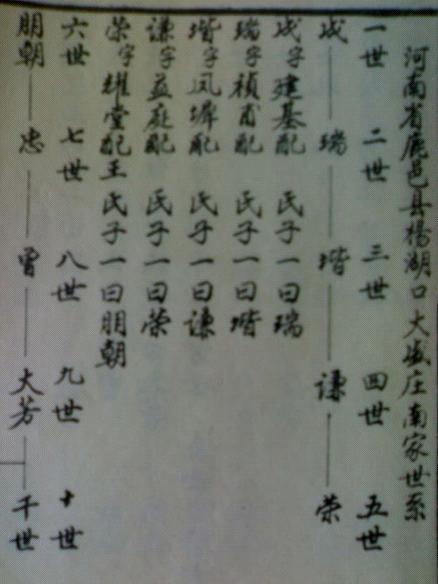 河南省鹿邑县楊湖口大盛庄南家世系
一世 二世 三世 四世 五世
成 瑞 堦 谦 荣
成字建基配 氏子一曰瑞
瑞字祯甫配 氏子一曰堦
堦字凤墀配 氏子一曰谦
谦字益庭配 氏子一曰荣
荣字耀堂配王氏子一曰朋朝
六世 七世 八世 九世 十世
朋朝 忠 曾 大芳 千世